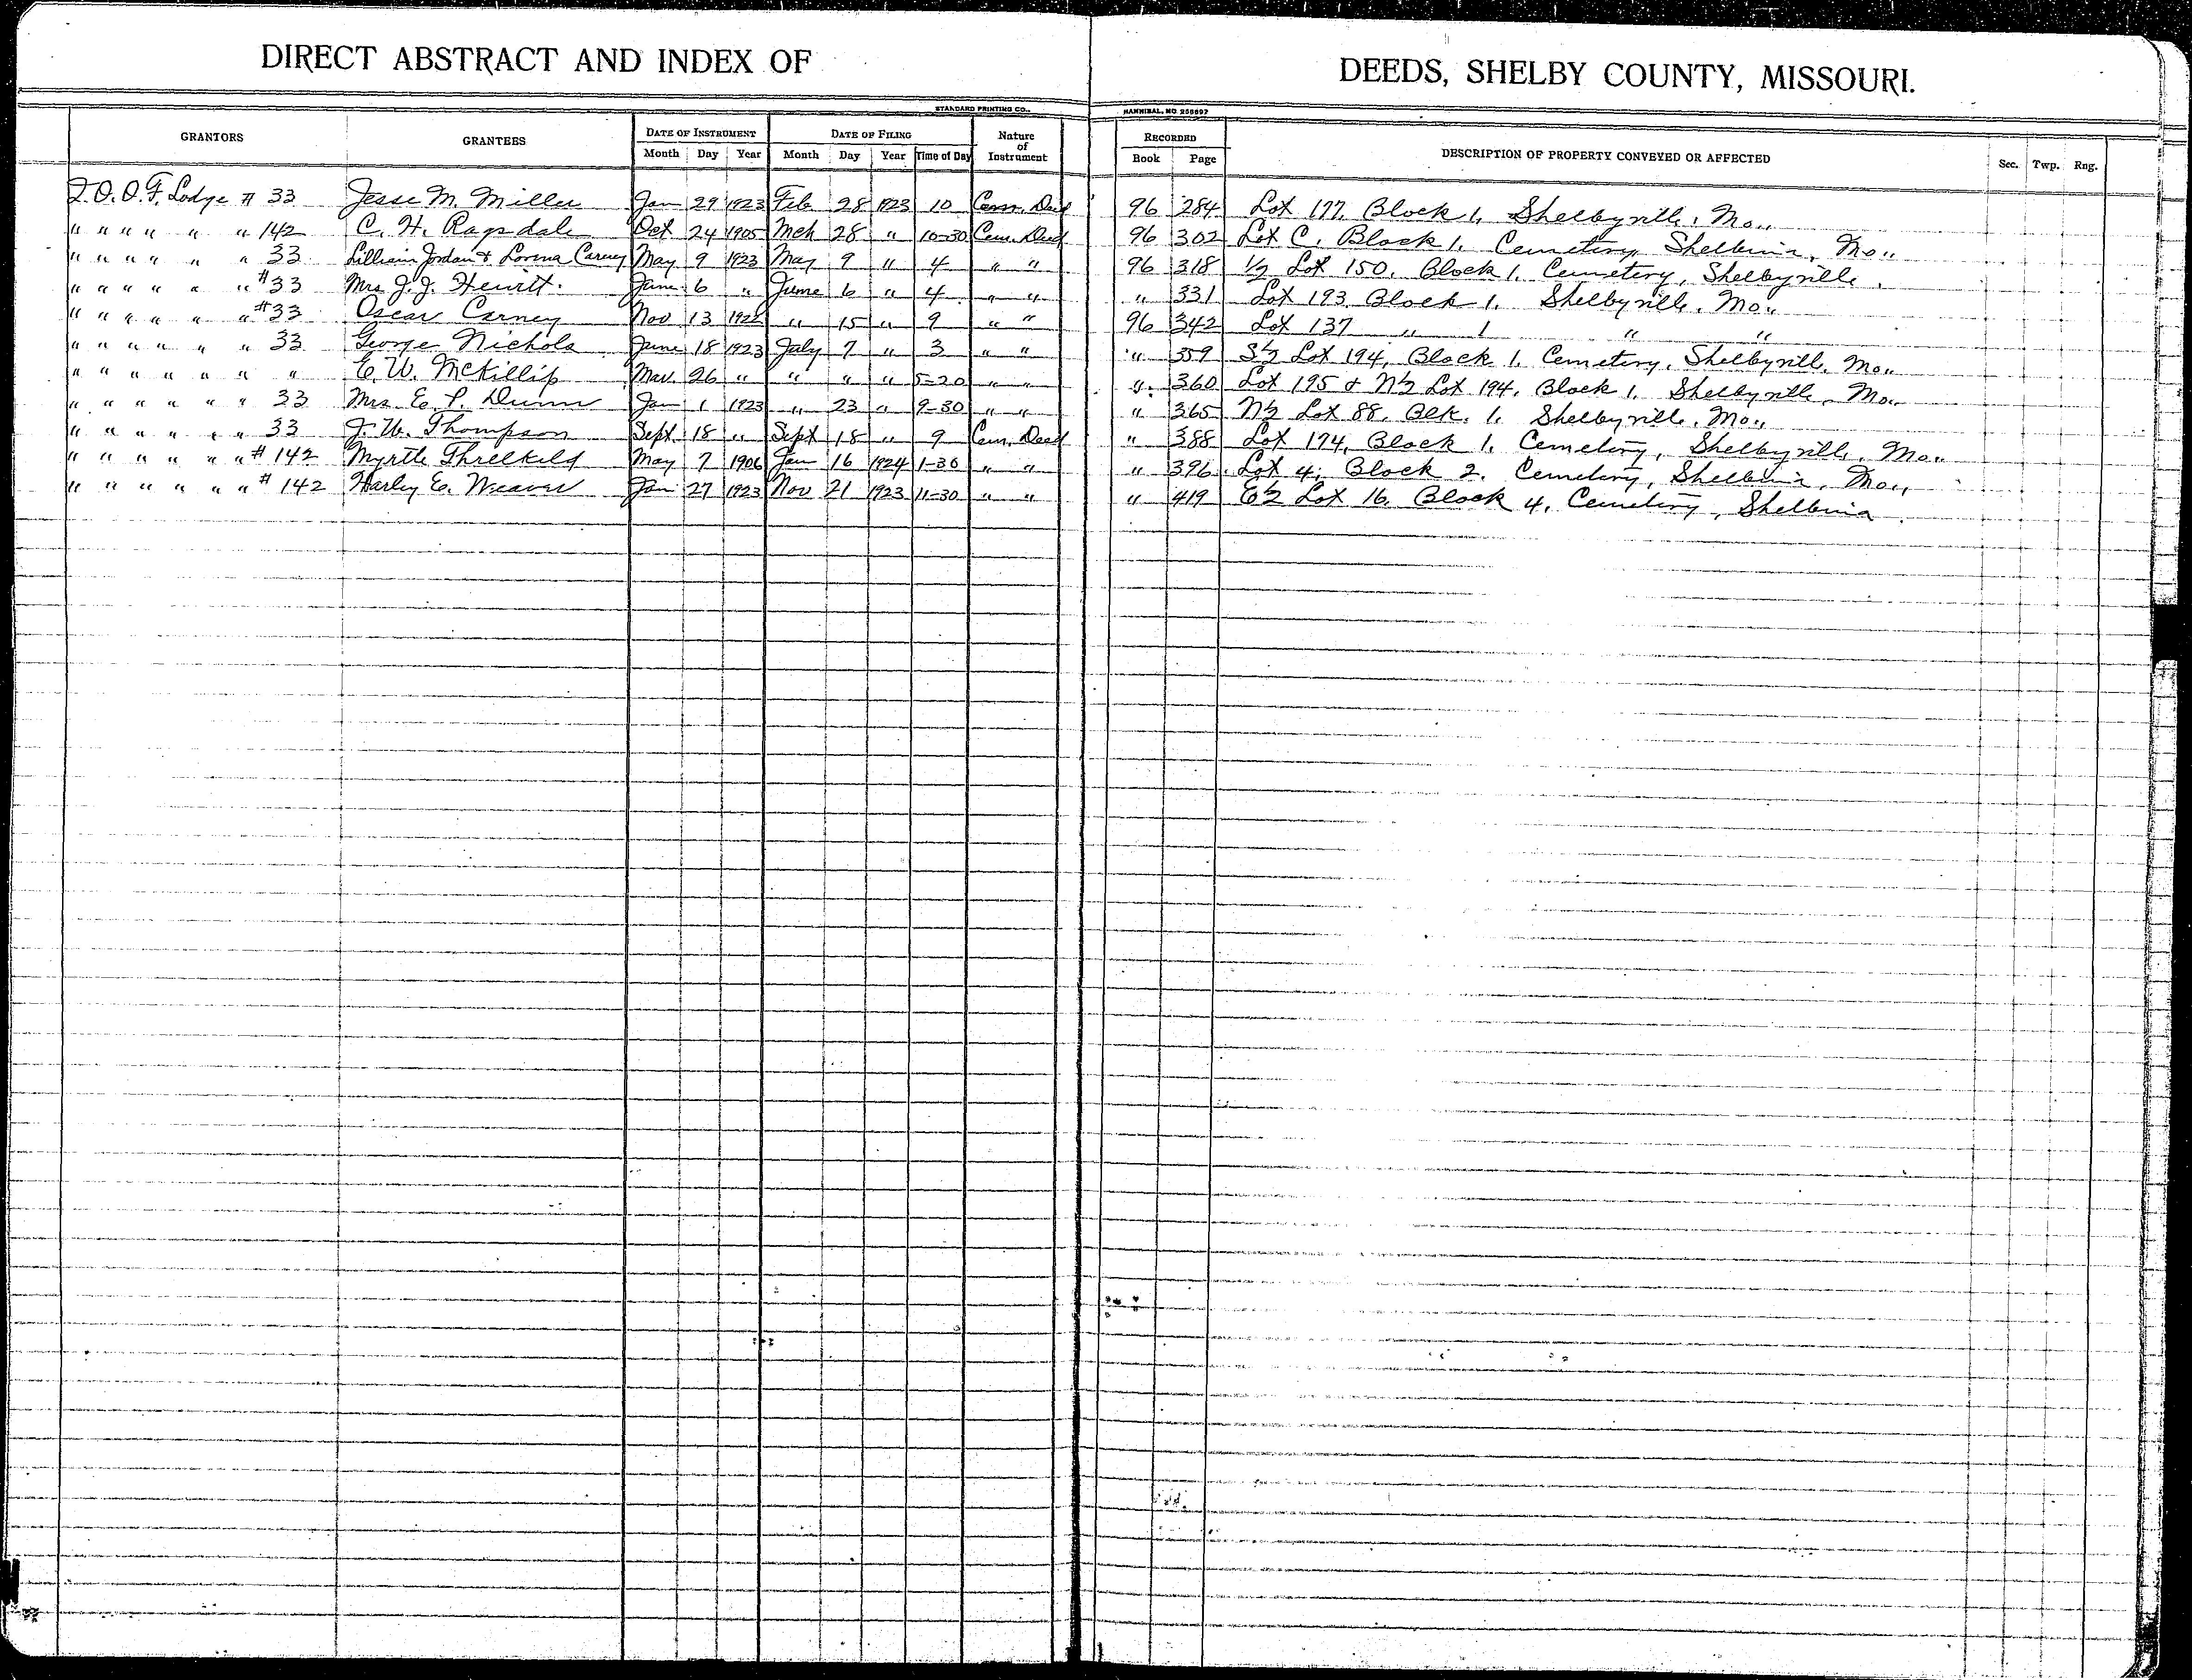 DIRECT ABSTRACT AND INDEX OF DEEDS, SHELBY COUNTY, MISSOURI.
STANDARD PRINTING CO., HANNIBAL, MO
GRANTORS GRANTEES DATE OF INSTRUMENT DATE OF FILING Nature of Instrument RECORDED DESCRIPTION OF PROPERTY CONVEYED OR AFFECTED Sec. Twp. Rng.
Month Day Year Month Day Year Time of Day Book Page
I.O.O.F. Lodge # 33 Jesse M. Miller Jan 29 1923 Feb 28 1923 10 Cem. Deed 96 284 Lot 177, Block 1, Shelbyville, Mo.,
" " " " " " 142 C. H. Ragsdale Oct 24 1905 Mch 28 " 10-30 Cem. Deed 96 302 Lot C, Block 1, Cemetery, Shelbina, Mo.,
" " " " " " 33 Lillian Jordan & Lorena Carney May 9 1923 May 9 " 4 " " 96 318 1/2 Lot 150, Block 1, Cemetery, Shelbyville,
" " " " " " #33 Mrs J. J. Hewitt. June 6 " June 6 " 4 " " " 331 Lot 193, Block 1, Shelbyville, Mo.,
" " " " " " #33 Oscar Carney Nov 13 1922 " 15 " 9 " " 96 342 Lot 137 " 1 " "
" " " " " " 33 George Nichols June 18 1923 July 7 " 3 " " " 359 S½ Lot 194, Block 1, Cemetery, Shelbyville, Mo.,
" " " " " " " E. W. McKillip Mar. 26 " " " " 5-20 " " " 360 Lot 195 & N½ Lot 194, Block 1, Shelbyville, Mo.,
" " " " " " 33 Mrs. E. P. Dunn Jan 1 1923 " 23 " 9-30 " " " 365 N½ Lot 88, Blk. 1, Shelbyville, Mo.,
" " " " " " 33 J. W. Thompson Sept 18 " Sept 18 " 9 Cem. Deed " 388 Lot 174, Block 1, Cemetery, Shelbyville, Mo.,
" " " " " " # 142 Myrtle Threlkeld May 7 1906 Jan 16 1924 1-30 " " " 396 Lot 4, Block 2, Cemetery, Shelbina, Mo.,
" " " " " " # 142 Harley E. Weaver Jan 27 1923 Nov 21 1923 11-30 " " " 419 E½ Lot 16, Block 4, Cemetery, Shelbina